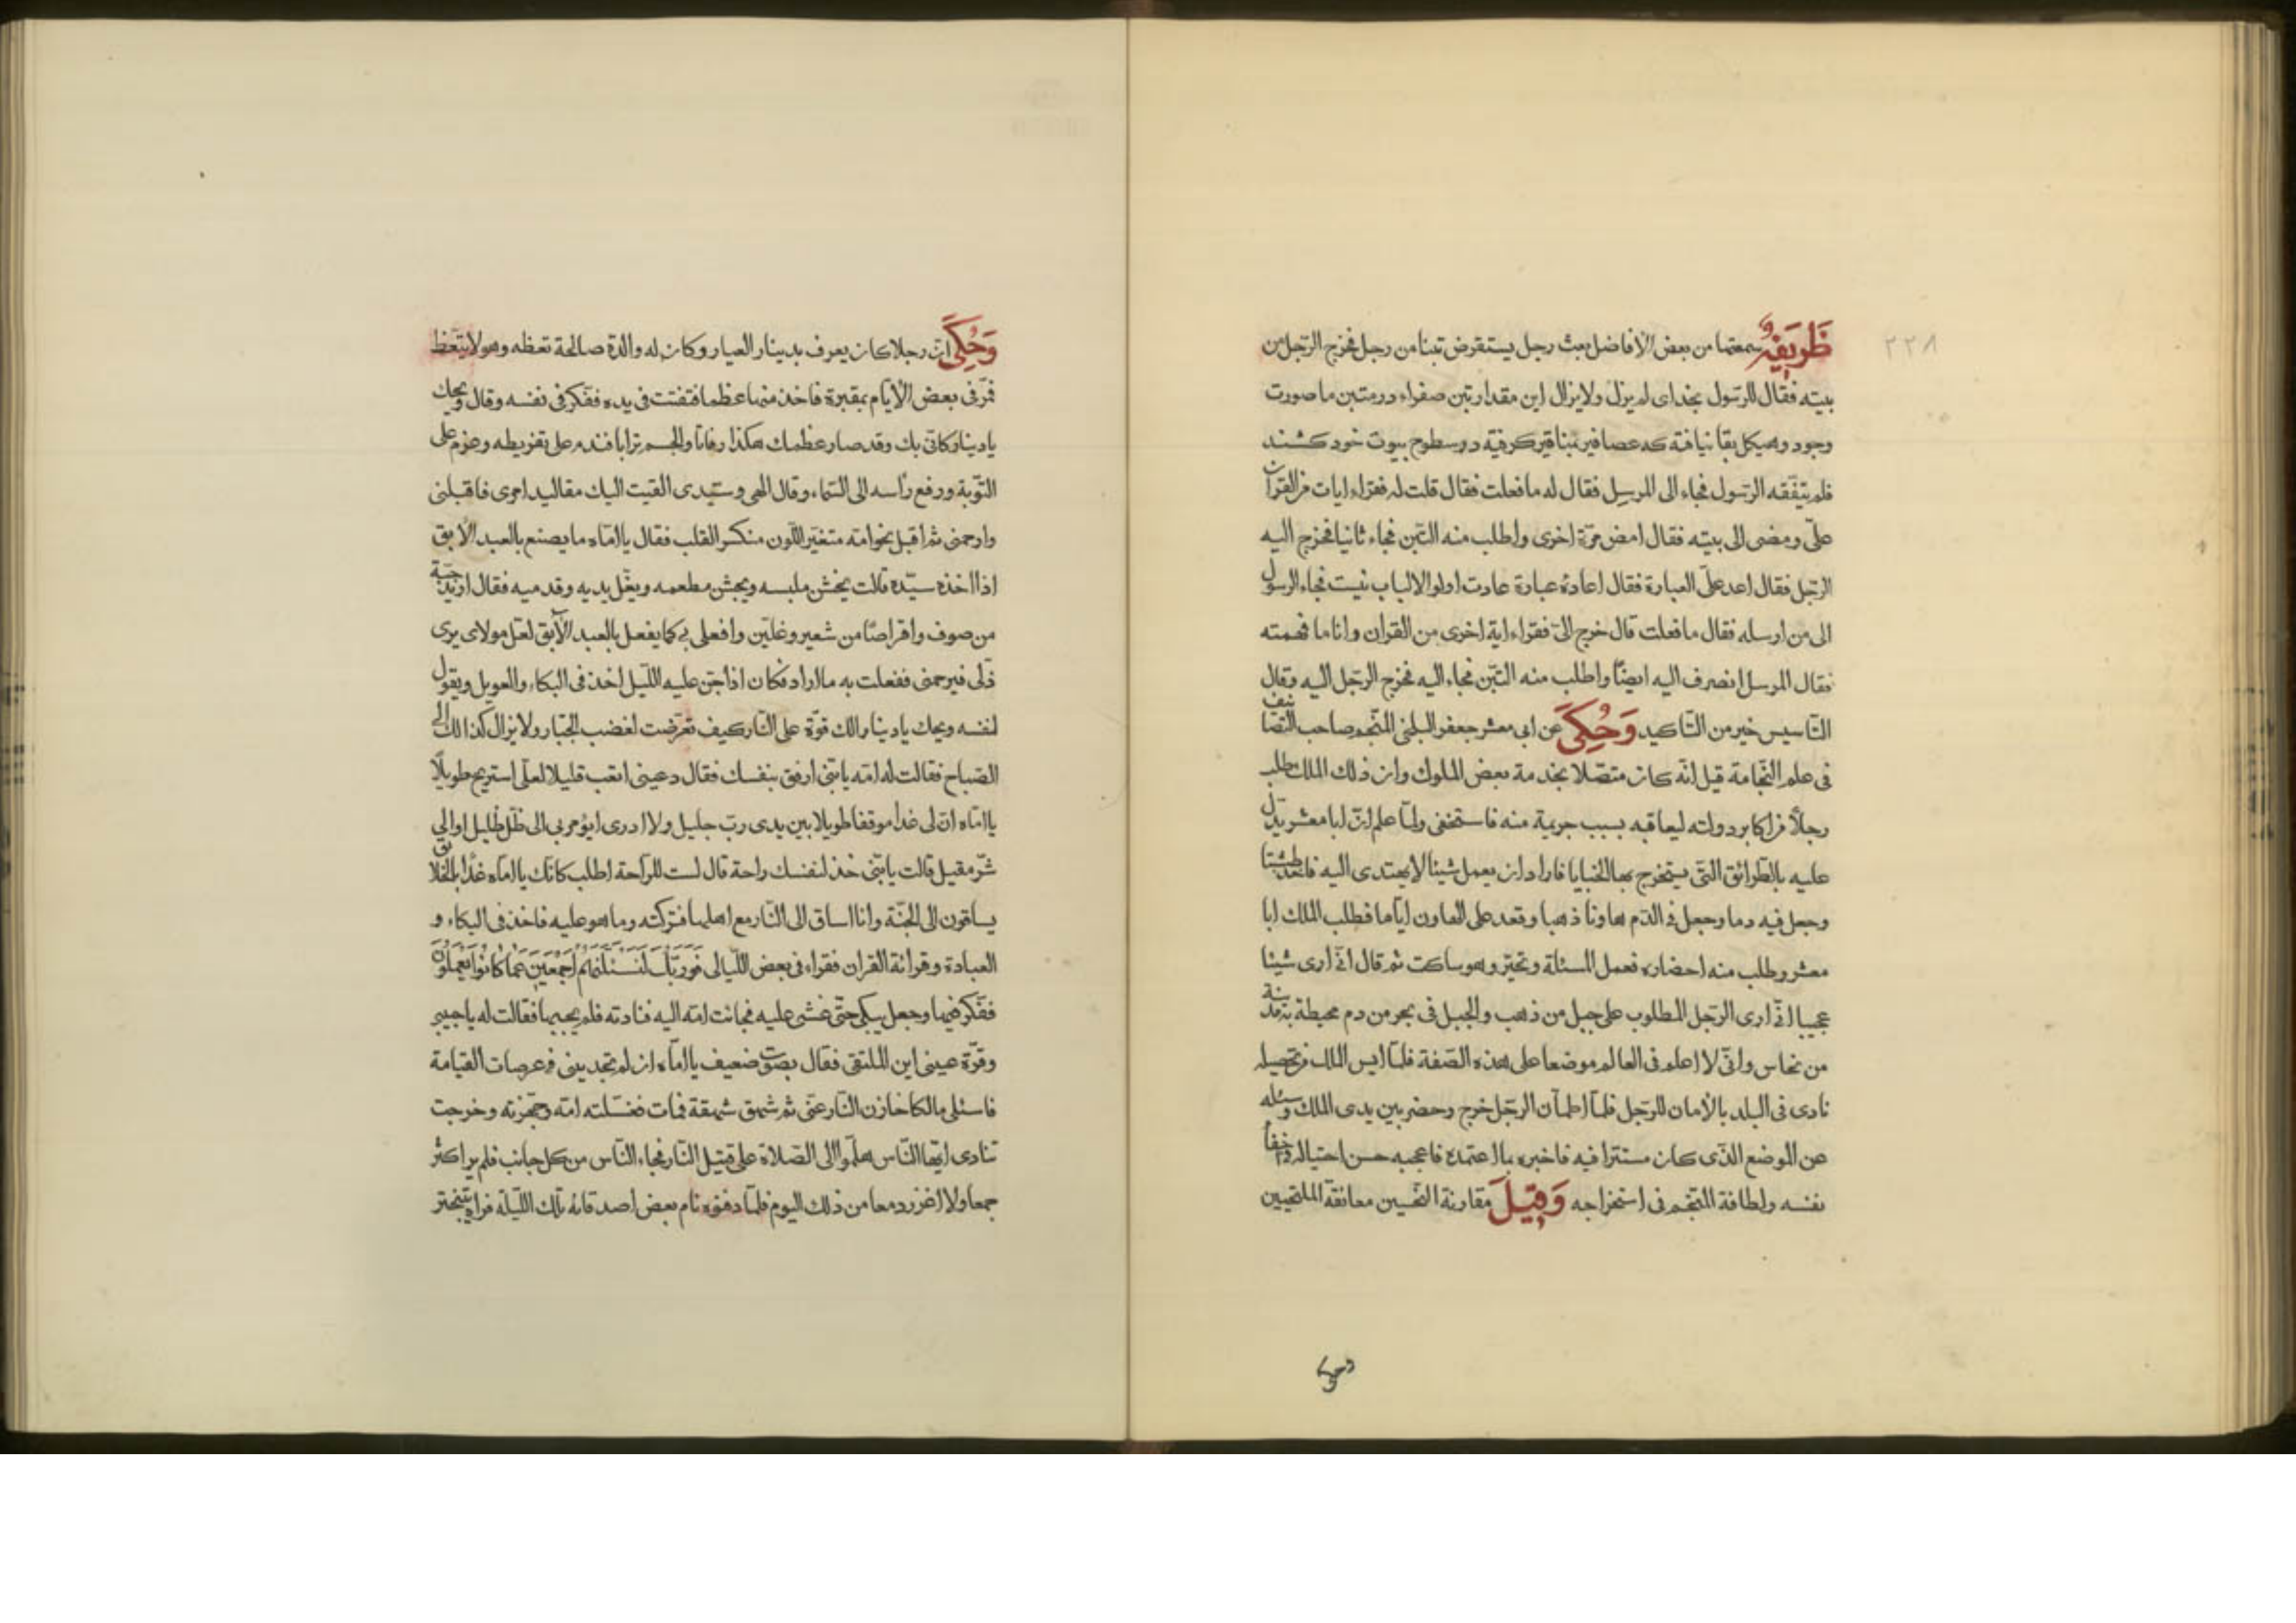 ٢٢٨
ظريفة سمعتها من بعض الأفاضل بعث رجل يستقرض تبنا من رجل فخرج الرّجل من
بيته فقال للرّسول بخدای لم يزل ولا يزال اين مقدار تبن صفراء درمتبن ما صورت
وجود وهيكل بقا نيافته كه عصافير بمناقير كرفته در سطوح بيوت خود كشند
فلم يتفقّه الرّسول فجاء الى المرسل فقال له ما فعلت فقال قلت له فقراء ايات من القرآن
علیّ ومضى الى بيته فقال امض مرّة اخرى واطلب منه التبن فجاء ثانيا فخرج اليه
الرّجل فقال اعد علیّ العبارة فقال اعادهٔ عبارة عادت اولو الالباب نيست فجاء الرسول
الى من ارسله فقال ما فعلت قال خرج الىّ فقراء اية اخرى من القران وانا ما فهمته
فقال المرسل انصرف اليه ايضًا واطلب منه التّبن فجاء اليه فخرج الرّجل اليه وقال
التّاسيس خير من التّاكيد وَحُكِيَ عن ابى معشر جعفر البلخى المنجّم صاحب التصانيف
فى علم النّجامة قيل انّه كان متصلا بخدمة بعض الملوك وان ذلك الملك طلب
رجلاً من اكابر دولته ليعاقبه بسبب جريمة منه فاستخفى ولمّا علم انّ ابا معشر يدلّ
عليه بالطّرائق التّى يستخرج بها الخبايا فاراد ان يعمل شيئا لا يهتدى اليه فاخذ طشتا
وجعل فيه دما وجعل فى الدّم هاونا ذهبا وقعد على الهاون ايّاما فطلب الملك ابا
معشر وطلب منه احضاره فعمل المسئلة وتحيّر وهو ساكت ثم قال انّى ارى شيئا
عجيبا انّى ارى الرّجل المطلوب على جبل من ذهب والجبل فى بحر من دم محيطة به مدينة
من نحاس وانّى لا اعلم فى العالم موضعا على هذه الصّفة فلمّا ايس الملك من تحصيله
نادى فى البلد بالأمان للرّجل فلمّا اطمأن الرّجل خرج وحضر بين يدى الملك وسئله
عن الموضع الذّى كان مستترا فيه فاخبره بما اعتمده فاعجبه حسن احتياله واخفاء
نفسه ولطافة المنجّم فى استخراجه وَقِيلَ مقارنة النّحسين معانقة الملتحيين
وحكى
وَحُكِيَ انّ رجلا كان يعرف بدينار العيار وكان له والدة صالحة تعظه وهو لا يتّعظ
فمرّ فى بعض الأيّام بمقبرة فاخذ منها عظما فتفتّت فى يده ففكّر فى نفسه وقال ويحك
يا دينار كانّى بك وقد صار عظمك هكذا رفاتا والجسم ترابا فندم على تفريطه وعزم على
التّوبة ورفع رأسه الى السّماء وقال الهى وسيّدى القيت اليك مقاليد امرى فاقبلنى
وارحمنى ثم اقبل نحو امّه متغيّر اللّون منكسر القلب فقال يا امّاه ما يصنع بالعبد الأبق
اذا اخذه سيّده قالت يخشن ملبسه ويجشن مطعمه ويغلّ يديه وقدميه فقال اريد جبّة
من صوف واقراصًا من شعير وغلّين وافعلى بى كما يفعل بالعبد الآبق لعلّ مولاى يرى
ذلّى فيرحمنى ففعلت به ما اراد فكان اذا جنّ عليه اللّيل اخذ فى البكاء والعويل ويقول
لنفسه ويحك يا دينار الك قوّة على النّار كيف تعرّضت لغضب الجبّار ولا يزال كذالك الى
الصّباح فقالت له امّه يا بنىّ ارفق بنفسك فقال دعينى اتعب قليلا لعلّى استريح طويلًا
يا امّاه انّ لى غدا موقفا طويلا بين يدى ربّ جليل ولا ادرى ايؤمر بى الى ظلّ ظليل او الى
شرّ مقيل قالت يا بنّى خذ لنفسك راحة قال لست للرّاحة اطلب كانّك يا امّاه غدًا بالخلائق
يساقون الى الجنّة وانا اساق الى النّار مع اهلها فتركته وما هو عليه فاخذ فى البكاء و
العبادة وقرائة القران فقراء فى بعض اللّيالى فَوَرَبِّكَ لَنَسْئَلَنَّهُمْ اَجْمَعِينَ عَمّا كانُوا يَعْمَلُونَ
ففكّر فيها وجعل يبكى حتّى غشى عليه فجائت امّه اليه فنادته فلم يجبها فقالت له يا حبيبى
وقرّة عينى اين الملتقى فقال بصوت ضعيف يا امّاه ان لم تجدينى فى عرصات القيامة
فاسئلى مالكا خازن النّار عنّى ثم شهق شهقة فمات فغسّلته امّه وجهّزته وخرجت
تنادى ايّها النّاس هلمّوا الى الصّلاة على قتيل النّار فجاء النّاس من كل جانب فلم ير اكثر
جمعا ولا اغزر دمعا من ذلك اليوم فلمّا دفنوه نام بعض اصدقائه تلك اللّيلة فراه يتبختر